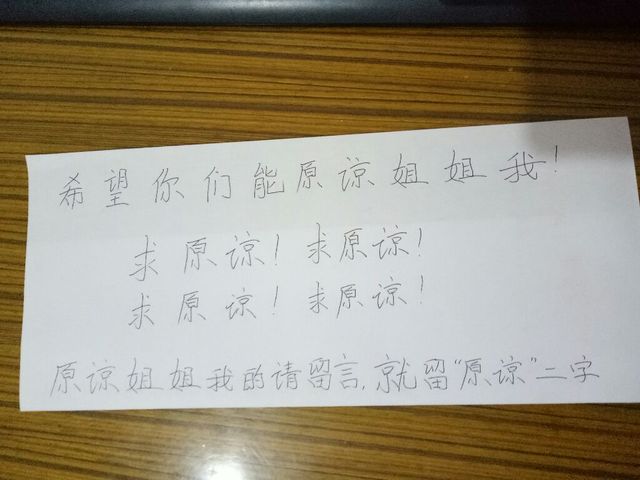 希望你们能原谅姐姐我！
求原谅！求原谅！
求原谅！求原谅！
原谅姐姐我的请留言,就留“原谅”二字